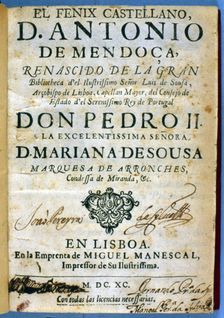 EL FENIX CASTELLANO,
D. ANTONIO
DE MENDOÇA,
RENASCIDO DE LA GRAN
Bibliotheca d'el Ilustrissimo Señor Luis de Sousa,
Arçobispo de Lisboa, Capellan Mayor, del Consejo de
Estado d'el Serenissimo Rey de Portugal
DON PEDRO II.
A LA EXCELENTISSIMA SEÑORA
D. MARIANA DE SOUSA
MARQUESA DE ARRONCHES,
Condessa de Miranda, &c.
EN LISBOA.
En la Emprenta de MIGUEL MANESCAL,
Impressor de Su Ilustrissima.
M. DC. XC.
Con todas las licencias necessarias.